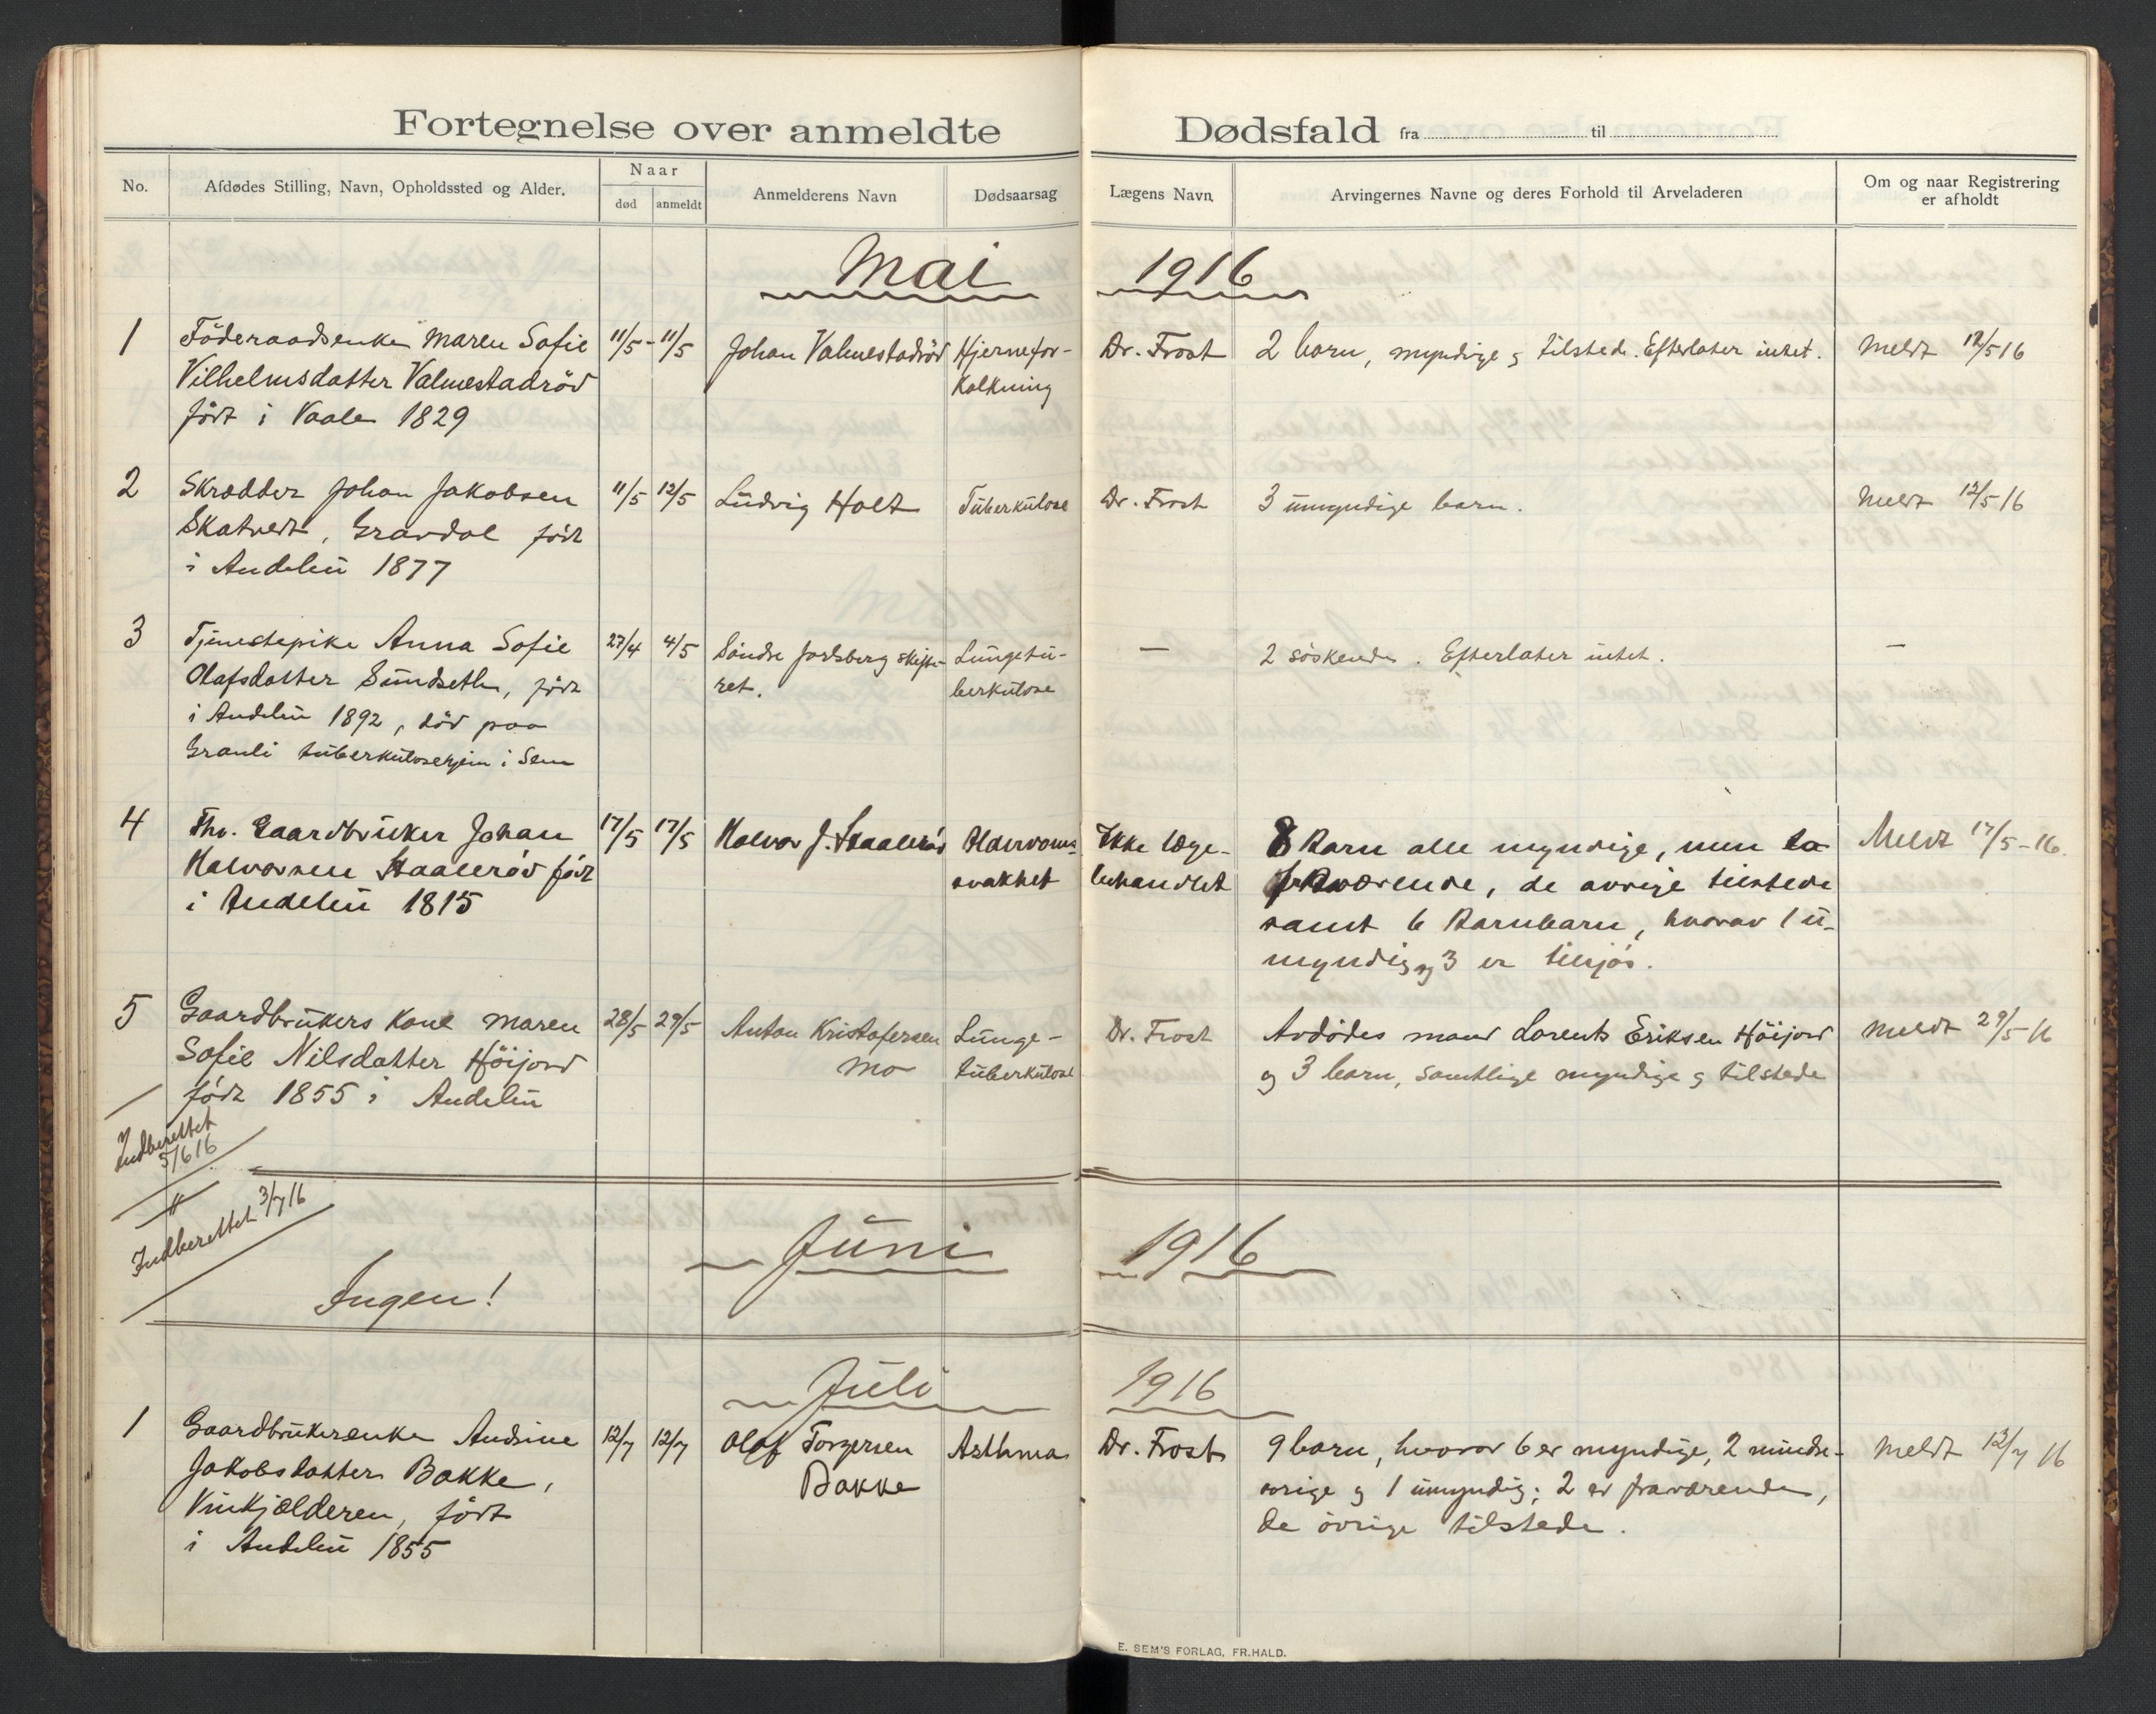 Fortegnelse over anmeldte Dødsfald fra til
No. Afdødes Stilling, Navn, Opholdssted og Alder. Naar Anmelderens Navn Dødsaarsag Lægens Navn Arvingernes Navne og deres Forhold til Arveladeren Om og naar Registrering
død anmeldt er afholdt
Mai 1916
1 Föderaadsenke Maren Sofie 11/5 - 11/5 Johan Valmestadröd Hjernefor- Dr. Frost 2 barn, myndige og tilstede. Efterlater intet. Meldt 12/5 16
Vilhelmsdatter Valmestadröd kalkning
födt i Vaale 1829
2 Skrædder Johan Jakobsen 11/5 12/5 Ludvig Holt Tuberkulose Dr. Frost 3 umyndige barn. Meldt 12/5 16
Skatvedt, Gravdal födt
i Andebu 1877
3 Tjenestepike Anna Sofie 27/4 4/5 Söndre Jarlsberg skifte- Lungetu- — 2 söskende. Efterlater intet. —
Olafsdatter Sundseth, födt ret. berkulose
i Andebu 1892, död paa
Granli tuberkulosehjem i Sem
4 Fhv. Gaardbruker Johan 17/5 17/5 Halvor J. Staalerød Alderdoms- Ikke læge- 8 Barn alle myndige, men to Meldt 17/5-16.
Halvorsen Staalerød født svakhet behandlet fraværende, de øvrige tilstede
i Andebu 1815 samt 6 Barnebarn, hvorav 1 u-
myndig og 3 er tilsjøs.
5 Gaardbrukers kone Maren 28/5 29/5 Anton Kristofersen Lunge- Dr. Frost Avdödes mand Lorents Eriksen Höijord Meldt 29/5 16
Sofie Nilsdatter Höijord Mo tuberkulose og 3 barn, samtlige myndige og tilstede
födt 1855 i Andebu
Indberettet
5/6 16
Indberettet 3/7 16
Juni 1916
Ingen!
Juli 1916
1 Gaardbrukerenke Andrine 12/7 12/7 Olaf Torgersen Asthma Dr. Frost 9 barn, hvorav 6 er myndige, 2 mindre- Meldt 12/7 16
Jakobsdatter Bakke, Bakke aarige og 1 umyndig; 2 er fraværende,
Vinkjælderen, födt de övrige tilstede.
i Andebu 1855
E. SEM'S FORLAG, FR.HALD.